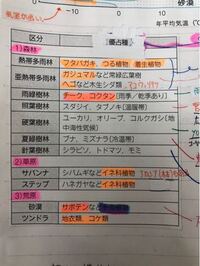 砂漠
-10
0
年平均気温(℃
区分
優占種
1)森林
熱帯多雨林 フタバガキ、つる植物、着生植物
亜熱帯多雨林 ガジュマルなど常緑広葉樹
ヘゴなど木生シダ類
雨緑樹林 チーク、コクタン(雨季/乾季あり)
照葉樹林 スダジイ、タブノキ(温暖帯)
硬葉樹林 ユーカリ、オリーブ、コルクガシ(地中海性気候)
夏緑樹林 ブナ、ミズナラ(冷温帯)
針葉樹林 シラビソ、トドマツ、モミ
2)草原
サバンナ シバムギなどイネ科植物
ステップ ハネガヤなどイネ科植物
3)荒原
砂漠 サボテンなど
ツンドラ 地衣類、コケ類